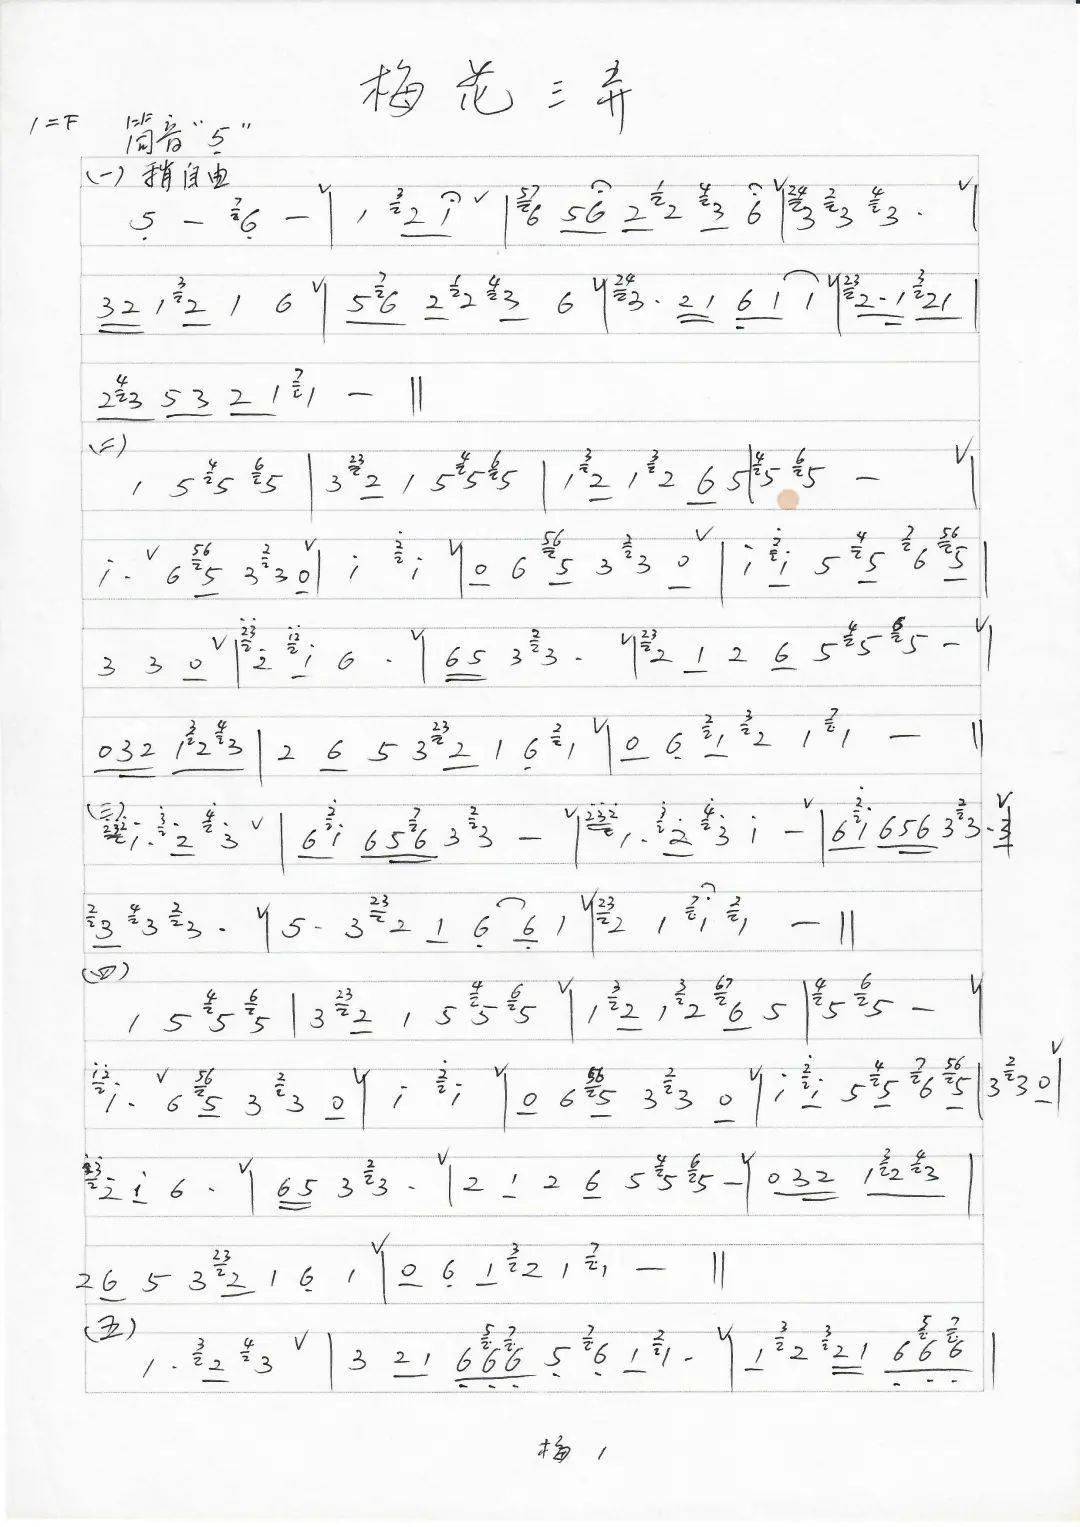 梅花三弄
1=F 筒音“5”
(一) 稍自由
5 — 6 — | 1 2 1 | 6 5 6 2 2 3 6 | 3 3 3 · |
3 2 1 2 1 6 | 5 6 2 2 3 6 | 3 · 2 1 6 1 1 | 2 · 1 2 1 |
2 3 5 3 2 1 1 — ‖
(二)
1 5 5 5 | 3 2 1 5 5 5 | 1 2 1 2 6 5 | 5 5 — |
i · 6 5 3 3 0 | i i | 0 6 5 3 3 0 | i i 5 5 6 5 |
3 3 0 | 2 i 6 · | 6 5 3 3 · | 2 1 2 6 5 5 5 — |
0 3 2 1 2 3 | 2 6 5 3 2 1 6 1 | 0 6 1 2 1 1 — ‖
(三)
i · 2 3 | 6 i 6 5 6 3 3 — | 1 · 2 3 i — | 6 i 6 5 6 3 3 · 3 |
3 3 3 · | 5 · 3 2 1 6 6 1 | 2 1 1 1 — ‖
(四)
1 5 5 5 | 3 2 1 5 5 5 | 1 2 1 2 6 5 | 5 5 — |
i · 6 5 3 3 0 | i i | 0 6 5 3 3 0 | i i 5 5 6 5 | 3 3 0 |
2 i 6 · | 6 5 3 3 · | 2 1 2 6 5 5 5 — | 0 3 2 1 2 3 |
2 6 5 3 2 1 6 1 | 0 6 1 2 1 1 — ‖
(五)
1 · 2 3 | 3 2 1 6 6 6 5 6 1 1 · | 1 2 2 1 6 6 6 |
梅 1